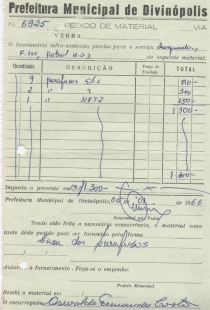 Prefeitura Municipal de Divinópolis
N. 6925 PEDIDO DE MATERIAL VIA
VERBA
O funcionário infra-assinado precisa para o serviço
F-600, Patrol nº 3 do seguinte material:
Quantidade DESCRIÇÃO Preço da Unidade TOTAL
9 parafusos 5/16
2 " "
1.300
1.300
Importa o presente em Cr$ 1.300
Prefeitura Municipal de Divinópolis, de 1966
Responsável pelo Pedido
Tendo sido feita a necessária concorrência, o material constante dêste pedido pode ser fornecido pela firma
Casa dos parafusos
Autorizo o fornecimento - Faça-se o empenho:
Prefeito Municipal
Recebi o material em
O encarregado Oswaldo Fernandes Costa